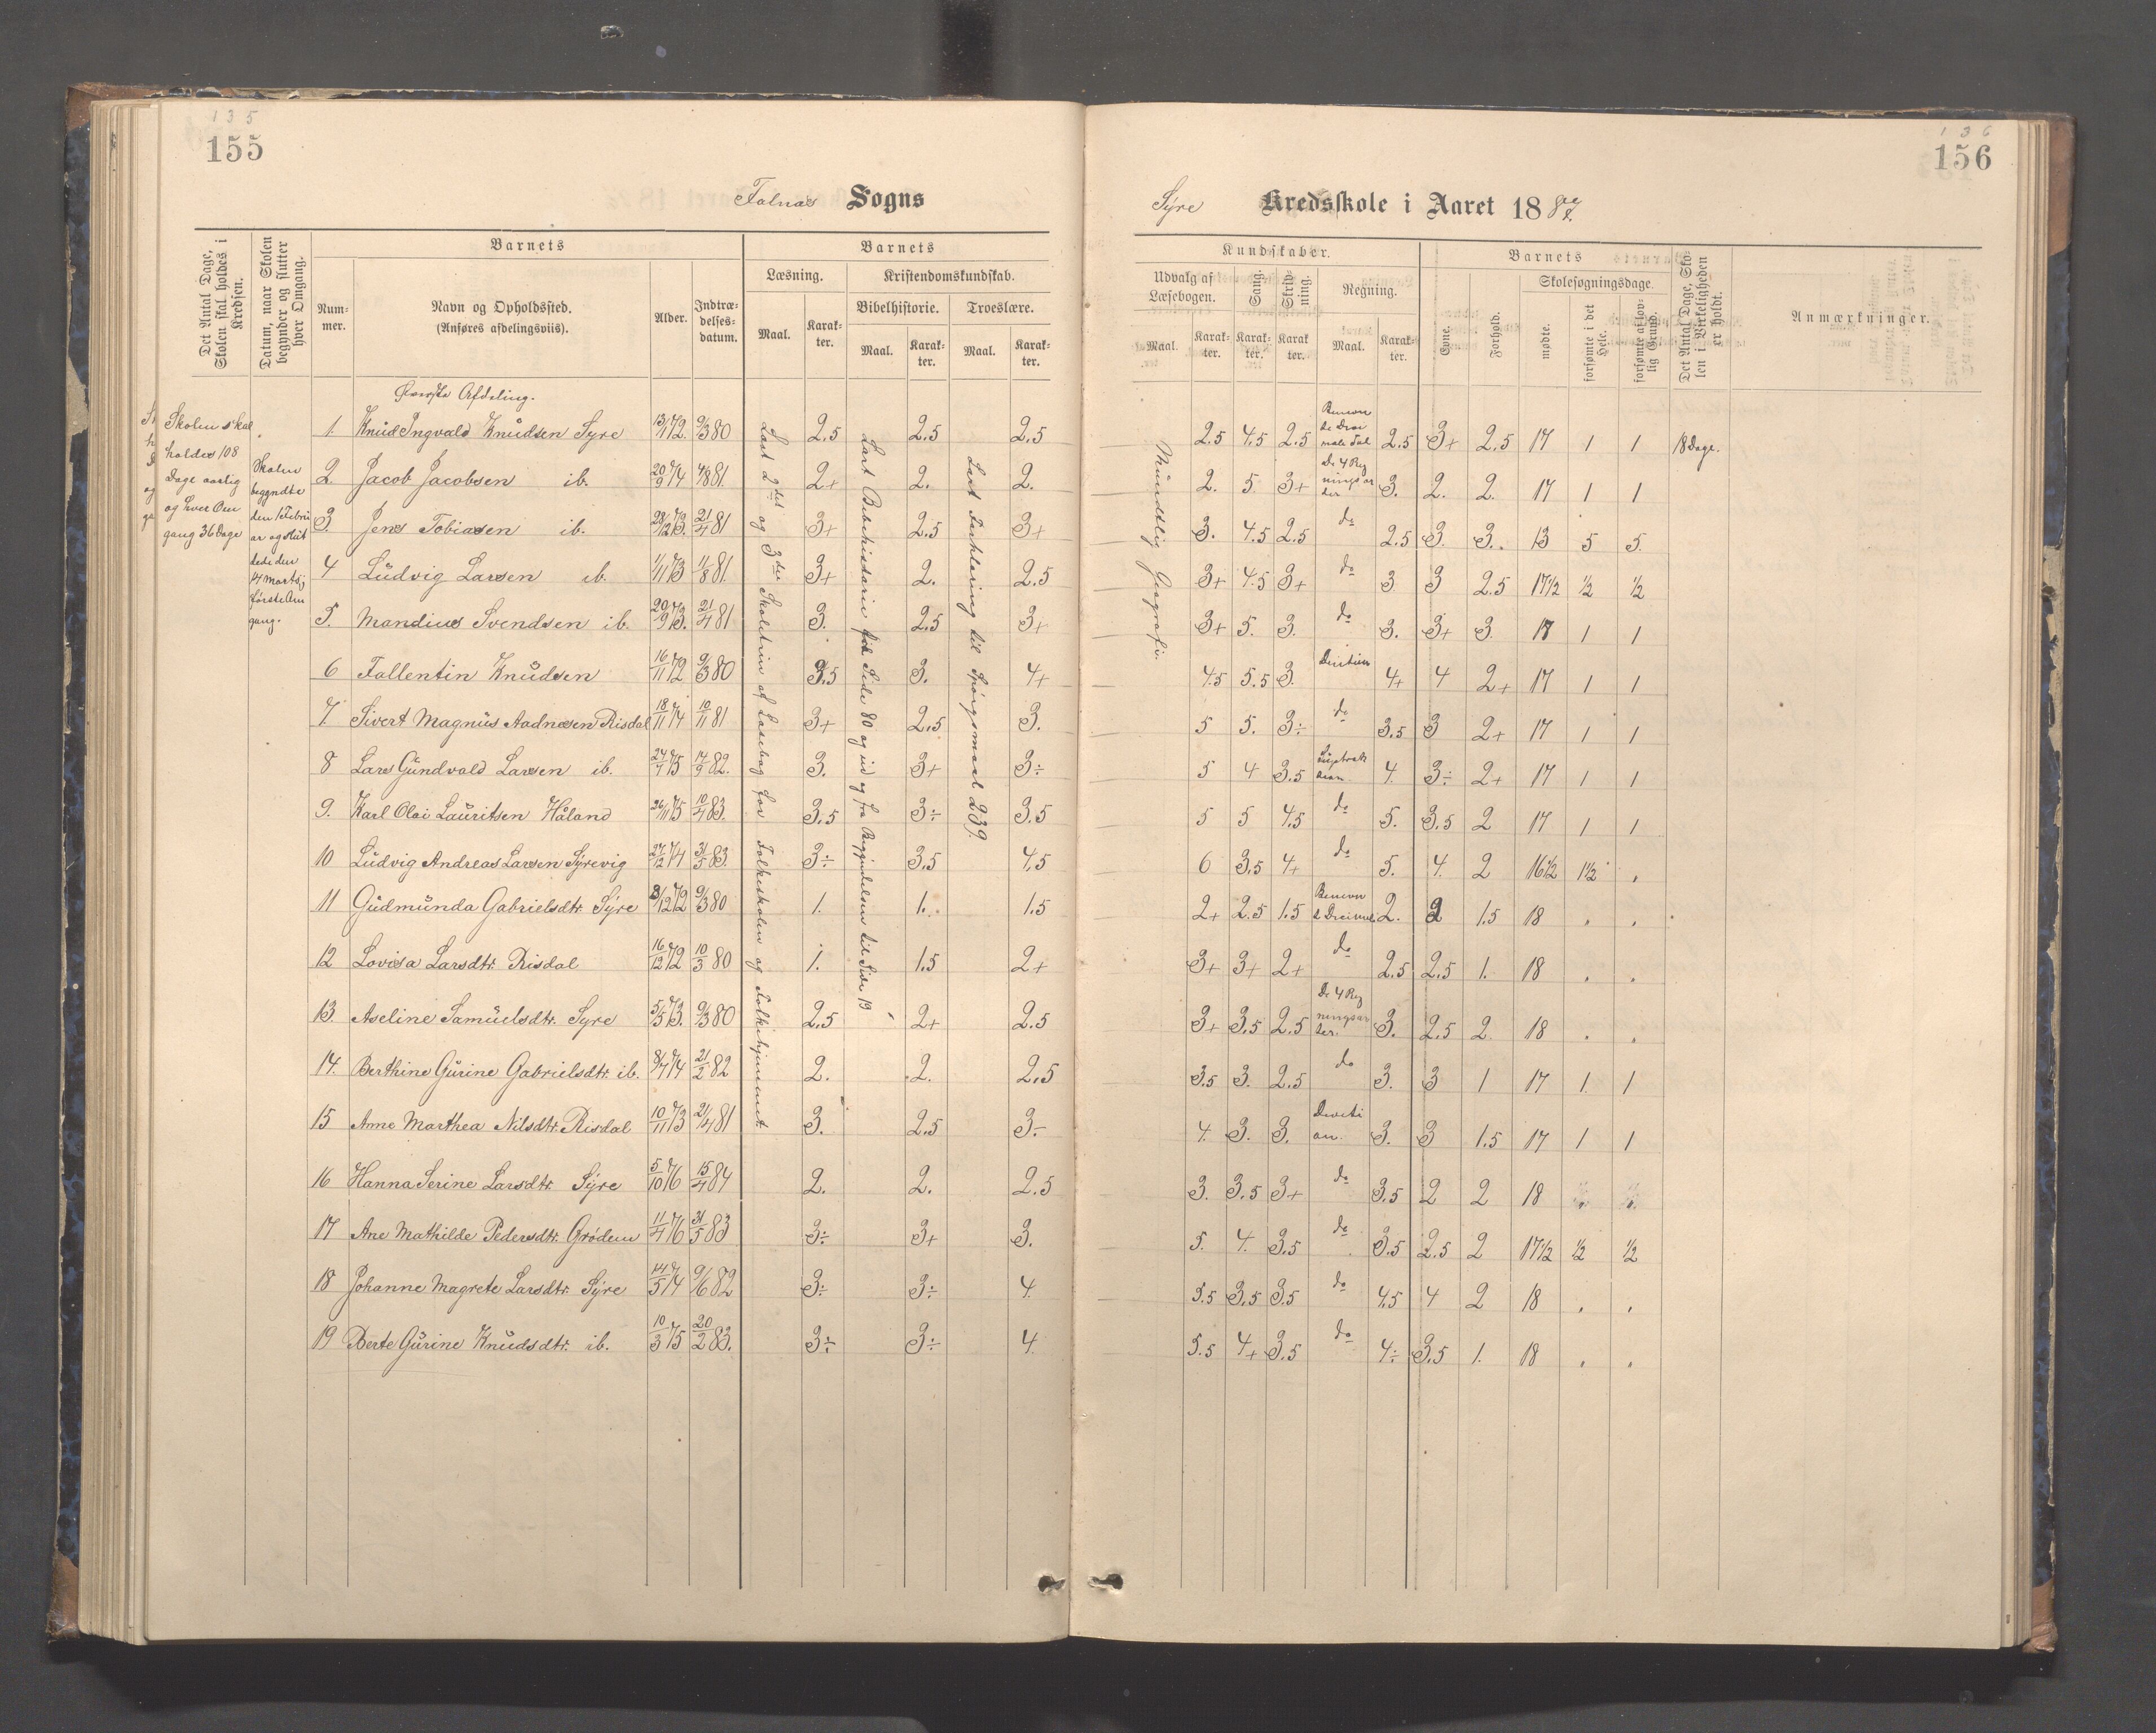 135
155
Falnæs Sogns
Det Antal Dage, Skolen skal holdes i Kredsen.
Datum, naar Skolen begynder og slutter hver Omgang.
Barnets
Num-mer.
Navn og Opholdssted.
(Anføres afdelingsviis).
Alder.
Indtræ-delses-datum.
Barnets
Læsning.
Kristendomskundskab.
Bibelhistorie.
Troeslære.
Maal.
Karak-ter.
Maal.
Karak-ter.
Maal.
Karak-ter.
Skolen skal
holdes 108
Dage aarlig
og hver Om
gang 36 Dage
Skolen
begyndte
den 1 Febru
ar og slut
tede den
14 Marts;
første Om
gang.
Øverste Afdeling.
1. Knud Ingvald Knudsen Syre 13/1 72. 9/3 80 2,5 2,5 2,5
2. Jacob Jacobsen ib. 20/9 74 4/8 81. 2+ 2. 2.
3. Jens Tobiasen ib. 28/12 73. 21/4 81 3+ 2,5 3+
4 Ludvig Larsen ib. 1/11 73 11/8 81. 3+ 2. 2.5
5. Mandius Svendsen ib. 20/9 73. 21/4 81 3. 2.5 3+
6 Fallentin Knudsen 16/11 72 9/3 80 3.5 3. 4+
7. Sivert Magnus Aadnesen Risdal 18/11 74 10/11 81 3+ 2,5 3.
8 Lars Gundvald Larsen ib. 24/7 75 14/9 82. 3. 3+ 3÷
9. Karl Olai Lauritsen Håland 26/11 75 10/4 83. 3,5 3÷ 3.5
10 Ludvig Andreas Larsen Syrevig 27/12 74 31/5 83. 3÷ 3,5 4,5
11 Gudmunda Gabrielsdtr. Syre 3/12 72 9/3 80 1. 1. 1.5
12 Lovisa Larsdtr. Risdal 16/12 72 10/3 80 1. 1.5 2+
13. Aseline Samuelsdtr. Syre 5/5 73. 9/3 80 2,5 2+ 2.5
14. Berthine Gurine Gabrielsdtr. ib. 8/7 74 21/2 82 2. 2. 2,5
15 Anne Marthea Nilsdtr. Risdal 10/11 73 21/4 81 3. 2.5 3-
16 Hanna Serine Larsdtr. Syre 5/10 76 15/4 84 2. 2. 2.5
17 Ane Mathilde Pedersdtr. Grødem 11/4 76 31/5 83 3÷ 3+ 3.
18 Johanne Magrete Larsdtr. Syre 14/5 74 9/6 82 3÷ 3÷ 4.
19 Berte Gurine Knudsdtr. ib. 10/3 75 20/2 83. 3÷ 3÷ 4.
Læst 2det og 3die Skoletrin af Læsebog for Folkeskolen og Folkehjemmet.
Læst Bibelhistorie fra Side 80 og ud og fra Begyndelsen til Side 19
Læst Forklaring til Spørgsmaal 239.
136
156
Syre Kredsskole i Aaret 1887.
Kundskaber.
Udvalg af Læsebogen.
Sang.
Skriv-ning.
Regning.
Maal.
Karak-ter.
Karak-ter.
Karak-ter.
Maal.
Karak-ter.
Barnets
Evne.
Forhold.
Skolesøgningsdage.
mødte.
forsømte i det Hele.
forsømte af lov-lig Grund.
Det Antal Dage, Sko-len i Virkeligheden er holdt.
Anmærkninger.
Mundtlig Geografi.
2.5 4,5 2.5 2.5 3+ 2,5 17 1 1 18 Dage.
2. 5. 3+ De 4 Reg
ningsar
ter 3. 2. 2. 17 1 1
3. 4.5 2.5 do 2.5 3. 3. 13 5 5.
3+ 4.5 3+ do 3 3 2.5 17 1/2 1/2 1/2
3+ 5. 3. do 3. 3+ 3. 17 1 1
4.5 5.5 3. 4+ 4 2+ 17 1 1
5 5. 3÷ do 3.5 3 2+ 17 1 1
5 4 3.5 4. 3÷ 2+ 17 1 1
5 5 4,5 do 5. 3.5 2 17 1 1
6 3,5 4+ do 5. 4. 2 16 1/2 1 1/2 .
2+ 2.5 1.5 2. 2 1.5 18 . .
3+ 3+ 2+ do 2.5 2,5 1. 18 . .
3+ 3,5 2.5 De 4 Reg
ningsar
ter. 3. 2.5 2. 18 . .
3.5 3. 2.5 do 3. 3 1 17 1. 1
4. 3. 3. 3. 3 1.5 17 1 1
3. 3.5 3+ do 3.5 2 2 18
5. 4. 3.5 do 3.5 2.5 2 17 1/2 1/2 1/2
5.5 3.5 3.5 do 4.5 4 2 18 . .
5.5 4+ 3.5 do 4÷ 3.5 1. 18 . .